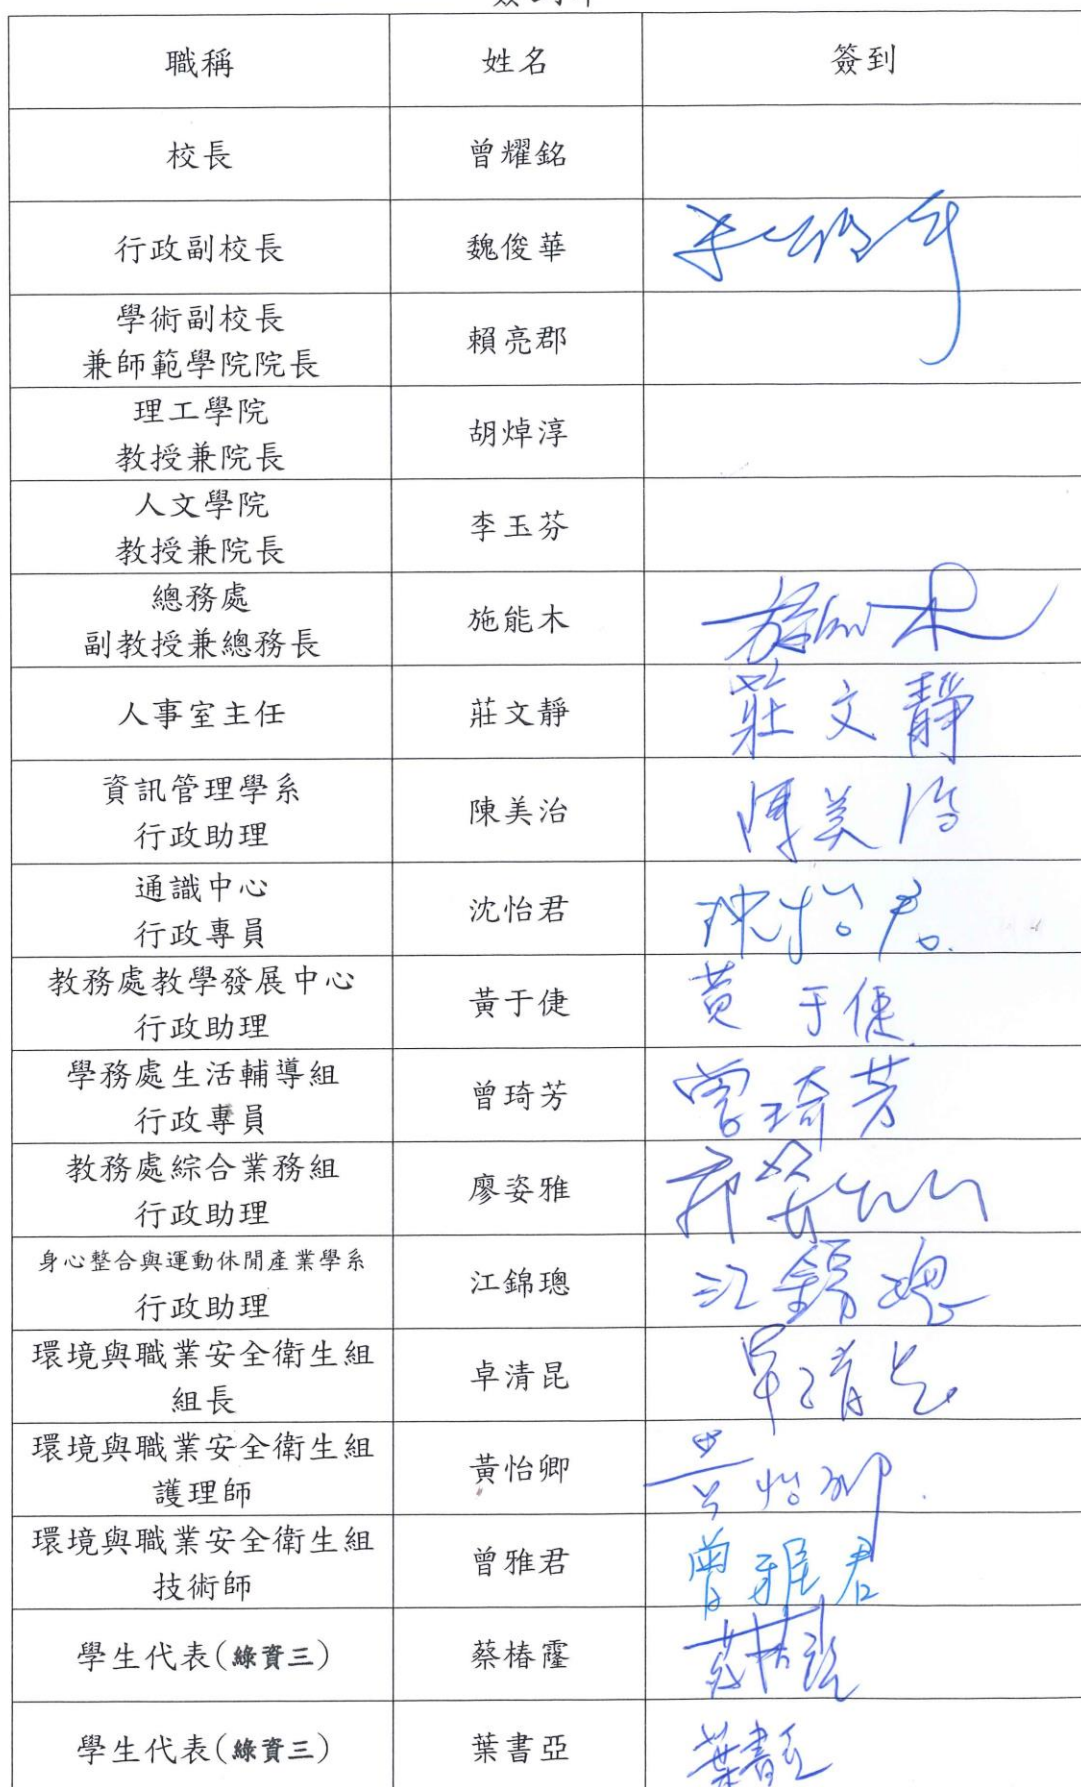 職稱 姓名 簽到
校長 曾耀銘
行政副校長 魏俊華
學術副校長
兼師範學院院長 賴亮郡
理工學院
教授兼院長 胡焯淳
人文學院
教授兼院長 李玉芬
總務處
副教授兼總務長 施能木 施能木
人事室主任 莊文靜 莊文靜
資訊管理學系
行政助理 陳美治 陳美治
通識中心
行政專員 沈怡君 沈怡君
教務處教學發展中心
行政助理 黃于倢 黃于倢
學務處生活輔導組
行政專員 曾琦芳 曾琦芳
教務處綜合業務組
行政助理 廖姿雅
身心整合與運動休閒產業學系
行政助理 江錦璁 江錦璁
環境與職業安全衛生組
組長 卓清昆 卓清昆
環境與職業安全衛生組
護理師 黃怡卿 黃怡卿
環境與職業安全衛生組
技術師 曾雅君 曾雅君
學生代表(綠資三) 蔡椿霳
學生代表(綠資三) 葉書亞 葉書亞